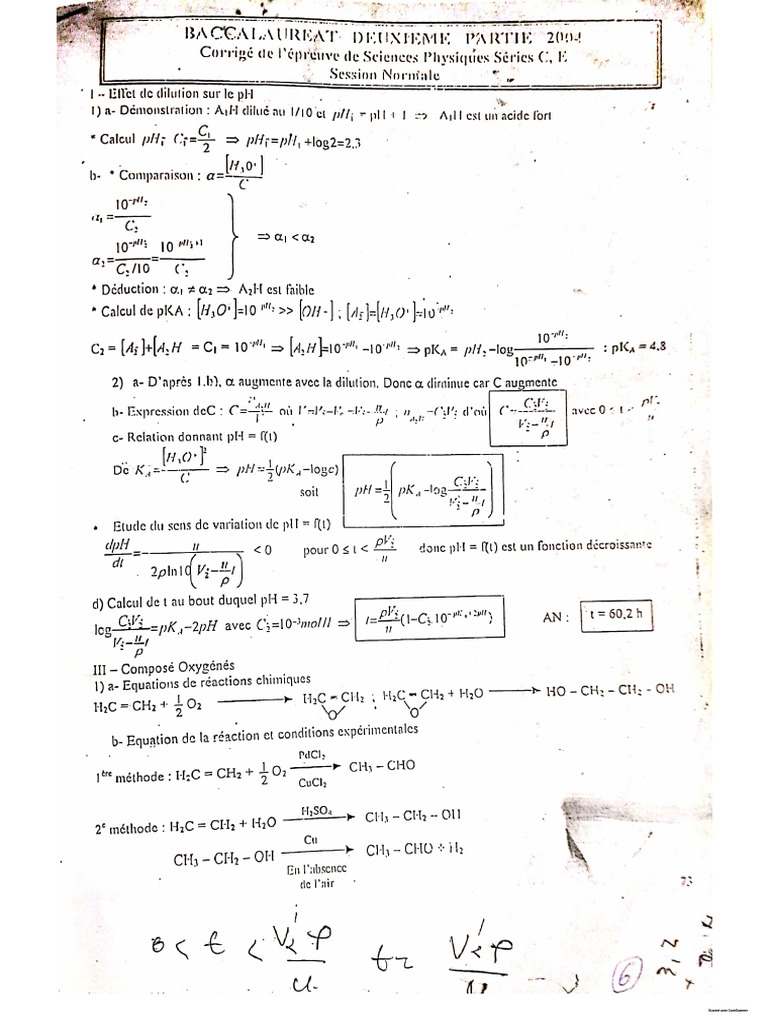 BACCALAUREAT DEUXIEME PARTIE 2004
Corrigé de l'épreuve de Sciences Physiques Séries C, E
Session Normale
I – Effet de dilution sur le pH
1) a- Démonstration : A₁H dilué au 1/10 et pH'₁ = pH + 1 ⇒ A₁H est un acide fort
* Calcul pH'₁ C'₁ = C₁/2 ⇒ pH'₁ = pH₁ + log2 = 2,3
b- * Comparaison : α = [H₃O⁺]/C
α₁ = 10^(-pH₂)/C₂
α₂ = 10^(-pH'₂)/(C₂/10) = 10^(-pH'₂+1)/C₂
⇒ α₁ < α₂
* Déduction : α₁ ≠ α₂ ⇒ A₂H est faible
* Calcul de pKA : [H₃O⁺]=10^(-pH₂) >> [OH-] ; [A₂⁻]=[H₃O⁺]=10^(-pH₂)
C₂ = [A₂⁻]+[A₂H = C₁ = 10^(-pH₁) ⇒ [A₂H]=10^(-pH₁) –10^(-pH₂) ⇒ pK_A = pH₂–log 10^(-pH₂)/(10^(-pH₁) –10^(-pH₂)) : pK_A = 4,8
2) a- D'après 1.b), α augmente avec la dilution. Donc α diminue car C augmente
b- Expression deC : C= où d'où avec 0 ≤ t <
c- Relation donnant pH = f(t)
De K_A = [H₃O⁺]²/C ⇒ pH = 1/2(pK_A –logc)
soit pH = 1/2(pK_A –log C'₂V'₂/(V'₂ – u/ρ t))
• Etude du sens de variation de pH = f(t)
dpH/dt = – u/(2ρ ln10(V'₂ – u/ρ t)) < 0 pour 0 ≤ t < ρV'₂/u donc pH = f(t) est un fonction décroissante
d) Calcul de t au bout duquel pH = 3,7
log C'₂V'₂/(V'₂ – u/ρ t) = pK_A –2pH avec C'₂=10⁻³mol/l ⇒ t = ρV'₂/u (1–C'₂ 10^(-pK_A+2pH)) AN : t = 60,2 h
III – Composé Oxygénés
1) a- Equations de réactions chimiques
H₂C = CH₂ + 1/2 O₂ ⟶ H₂C – CH₂ ; H₂C – CH₂ + H₂O ⟶ HO – CH₂ – CH₂ – OH
O O
b- Equation de la réaction et conditions expérimentales
PdCl₂
1ère méthode : H₂C = CH₂ + 1/2 O₂ ⟶ CH₃ – CHO
CuCl₂
H₂SO₄
2e méthode : H₂C = CH₂ + H₂O ⟶ CH₃ – CH₂ – OH
Cu
CH₃ – CH₂ – OH ⟶ CH₃ – CHO + H₂
En l'absence
de l'air
73
0 < t < V'₂ρ/u t = V'₂ρ/u
6
Scanned with CamScanner